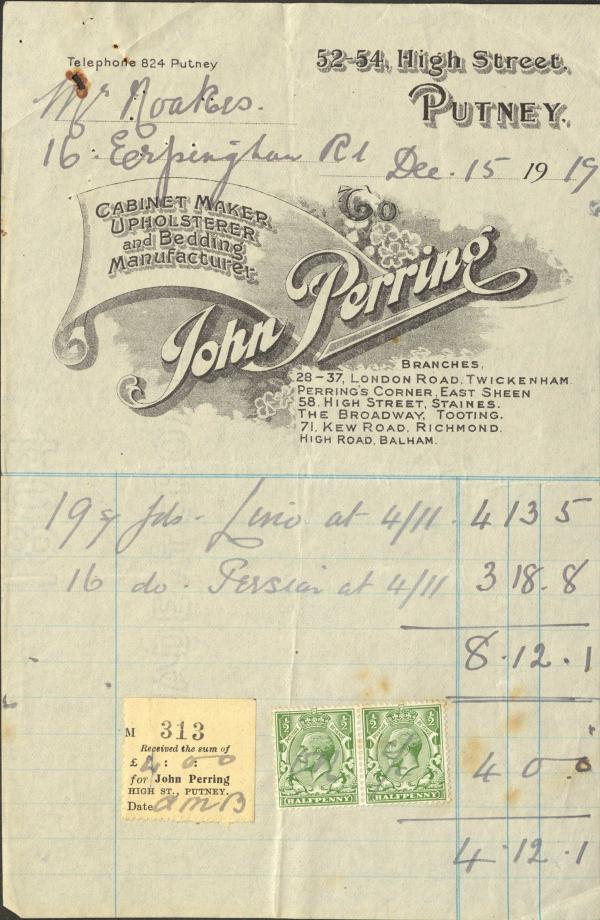 Telephone 824 Putney
52-54, High Street,
PUTNEY.
Mr Noakes.
16. Erpingham Rd
Dec. 15 1919
To
CABINET MAKER
UPHOLSTERER
and Bedding
Manufacturer.
John Perring
BRANCHES,
28-37, LONDON ROAD, TWICKENHAM.
PERRING'S CORNER, EAST SHEEN
58, HIGH STREET, STAINES.
THE BROADWAY, TOOTING.
71, KEW ROAD, RICHMOND.
HIGH ROAD, BALHAM.
19 yds. Lino at 4/11. 4 13 5
16 do. Persian at 4/11 3 18. 8
8. 12. 1
M 313
Received the sum of
£ 4 : 0 : 0
for John Perring
HIGH ST., PUTNEY.
Date
½ ½ ½ ½
HALFPENNY HALFPENNY
4 0 0
4. 12. 1